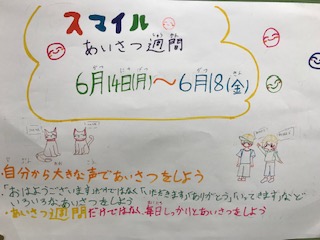 スマイル
あいさつ週間
6月14日(月)～6月18(金)
自分から大きな声であいさつをしよう
・「おはようございます」だけではなく「いただきます」「ありがとう」「いってきます」など
いろいろなあいさつをしよう
・あいさつ週間だけではなく、毎日しっかりとあいさつをしよう